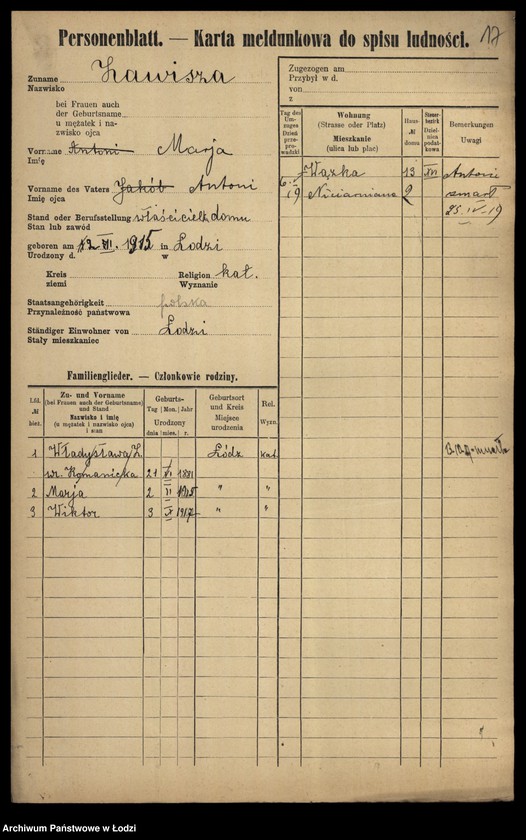 Personenblatt. — Karta meldunkowa do spisu ludności.
17
Zuname Zawisza
Nazwisko
bei Frauen auch
der Geburtsname
u mężatek i na-
zwisko ojca
Vorname Antoni Marja
Imię
Vorname des Vaters Jakób Antoni
Imię ojca
Stand oder Berufsstellung właścicielk domu
Stan lub zawód
geboren am 2. VI. 1915 in Łodzi
Urodzony d. w
Kreis
ziemi
Religion kat.
Wyznanie
Staatsangehörigkeit polska
Przynależność państwowa
Ständiger Einwohner von Łodzi
Stały mieszkaniec
Zugezogen am
Przybył w d.
von
z
Tag des Um-zuges Dzień prze-prowadzki
Wohnung (Strasse oder Platz) Mieszkanie (ulica lub plac)
Haus- № domu
Steuer-bezirk Dziel-nica podat-kowa
Bemerkungen Uwagi
Wązka 13 XVI Antoni
19 Niciarniana 2 zmarł
25 IV 19
Familienglieder. — Członkowie rodziny.
Lfd. № bież.
Zu- und Vorname (bei Frauen auch der Geburtsname) und Stand Nazwisko i imię (u mężatek i nazwisko ojca) i stan
Geburts- Tag Mon. Jahr Urodzony dnia mies. r.
Geburtsort und Kreis Miejsce urodzenia
Rel. Wyzn.
1 Władysława Z. Łódź kat.
ur. Romanicka 21 VI 1881
2 Marja 2 VI 1915 " "
3 Wiktor 3 X 1917 " "
Archiwum Państwowe w Łodzi